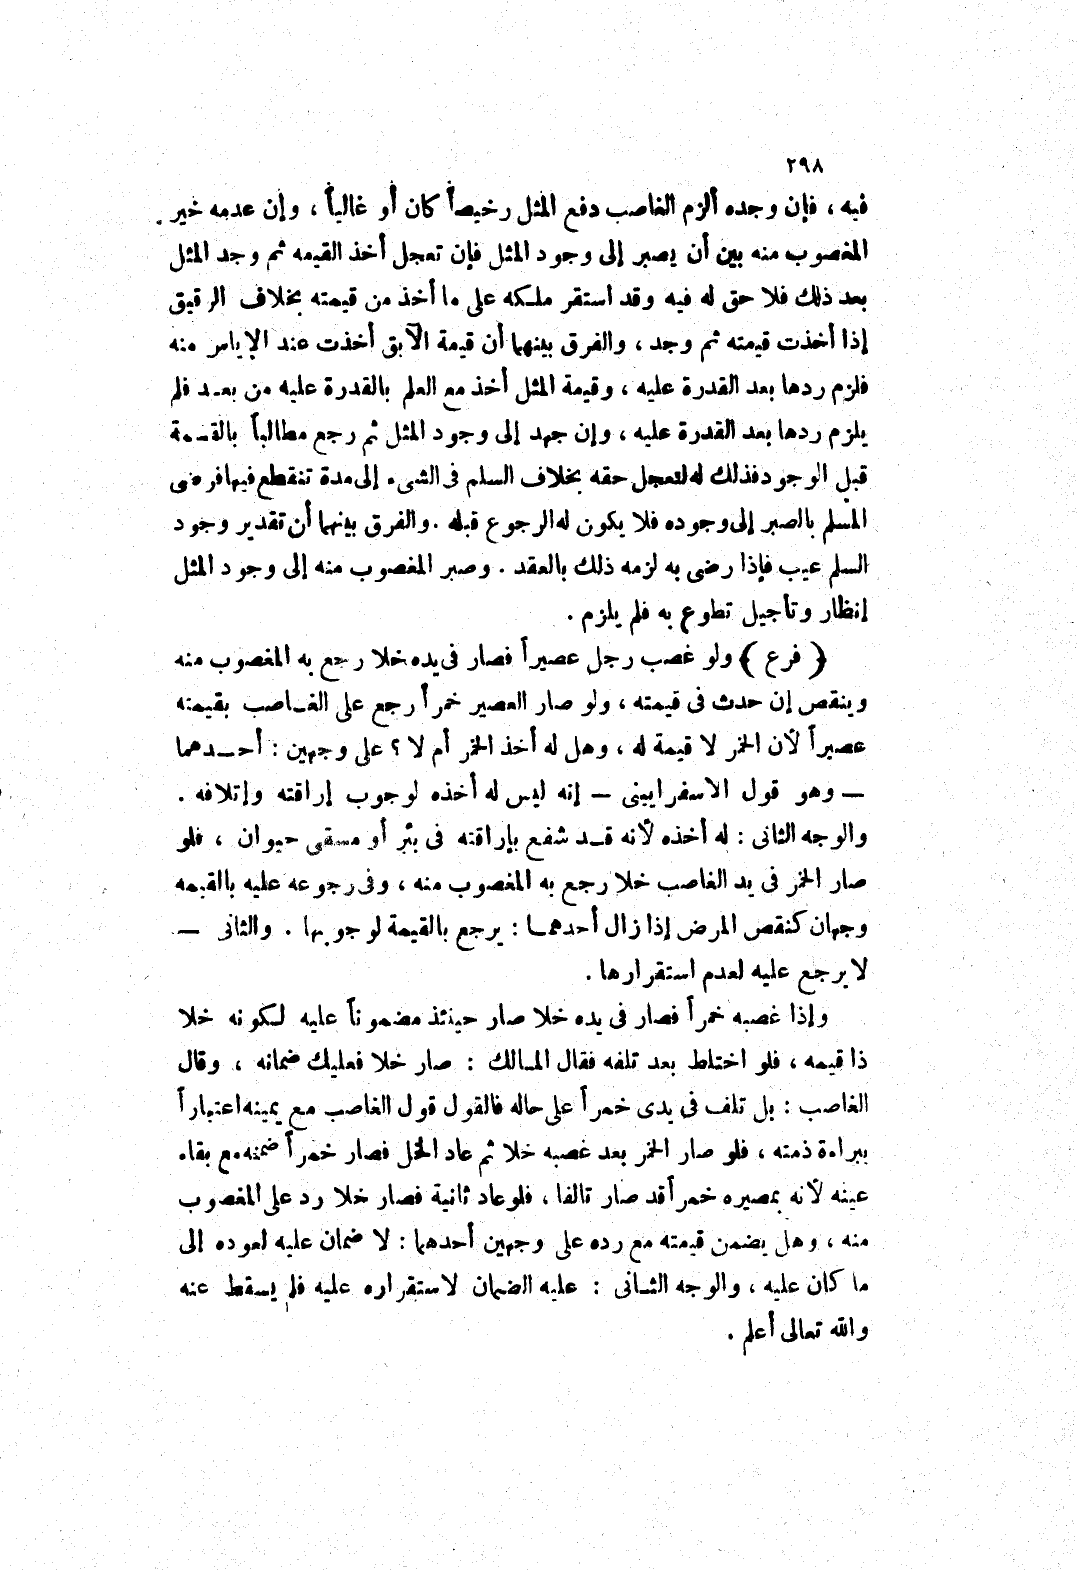 ٢٩٨
فيه ، فإن وجده ألزم الغاصب دفع المثل رخيصاً كان أو غالياً ، وإن عدمه خير
المغصوب منه بين أن يصبر إلى وجود المثل فإن تعجل أخذ القيمه ثم وجد المثل
بعد ذلك فلا حق له فيه وقد استقر ملكه على ما أخذ من قيمته بخلاف الرقيق
إذا أخذت قيمته ثم وجد ، والفرق بينهما أن قيمة الآبق أخذت عند الإياس منه
فلزم ردها بعد القدرة عليه ، وقيمة المثل أخذ مع العلم بالقدرة عليه من بعد فلم
يلزم ردها بعد القدرة عليه ، وإن جهد إلى وجود المثل ثم رجع مطالباً بالقسمة
قبل الوجود فذلك له لتعجل حقه بخلاف السلم فى الشىء إلى مدة تنقطع فيها فرضى
المسلم بالصبر إلى وجوده فلا يكون له الرجوع قبله . والفرق بينهما أن تقدير وجود
السلم عيب فإذا رضى به لزمه ذلك بالعقد . وصبر المغصوب منه إلى وجود المثل
إنظار وتأجيل تطوع به فلم يلزم .
( فرع ) ولو غصب رجل عصيراً فصار فى يده خلا رجع به المغصوب منه
وينقص إن حدث فى قيمته ، ولو صار العصير خمراً رجع على الغاصب بقيمته
عصيراً لأن الخمر لا قيمة له ، وهل له أخذ الخمر أم لا ؟ على وجهين : أحدهما
— وهو قول الاسفرايينى — إنه ليس له أخذه لوجوب إراقته وإتلافه .
والوجه الثانى : له أخذه لأنه قد شفع بإراقته فى بئر أو مسقى حيوان ، فلو
صار الخمر فى يد الغاصب خلا رجع به المغصوب منه ، وفى رجوعه عليه بالقيمه
وجهان كنقص المرض إذا زال أحدهما : يرجع بالقيمة لوجوبها . والثانى —
لا يرجع عليه لعدم استقرارها .
وإذا غصبه خمراً فصار فى يده خلا صار حينئذ مضموناً عليه لكونه خلا
ذا قيمه ، فلو اختلط بعد تلفه فقال المالك : صار خلا فعليك ضمانه ، وقال
الغاصب : بل تلف فى يدى خمراً على حاله فالقول قول الغاصب مع يمينه اعتباراً
ببراءة ذمته ، فلو صار الخمر بعد غصبه خلا ثم عاد الخل فصار خمراً ضمنه مع بقاء
عينه لأنه بمصيره خمراً قد صار تالفا ، فلو عاد ثانية فصار خلا رد على المغصوب
منه ، وهل يضمن قيمته مع رده على وجهين أحدهما : لا ضمان عليه لعوده إلى
ما كان عليه ، والوجه الثانى : عليه الضمان لاستقراره عليه فلم يسقط عنه
والله تعالى أعلم .